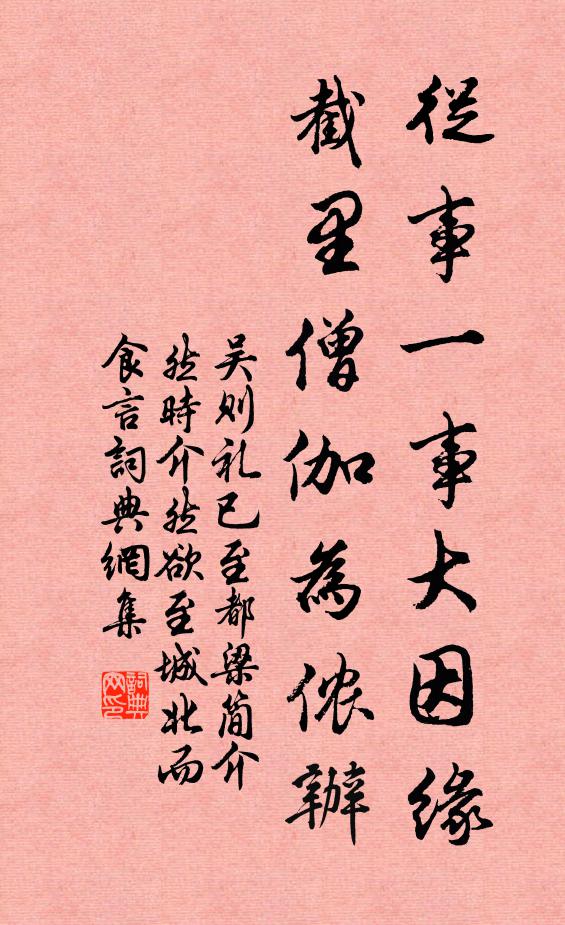 從事一事大因緣
截里僧伽為侬辦
吴则礼已至都梁简介
然時介然欲至城北而
食言詞典網集
詞典网印